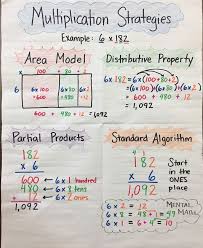 Multiplication Strategies
Example: 6 x 182
Area Model
x 100 + 80 + 2
6 6x100 6x80 6x2
= 600 + 480 + 12
= 1,092
Distributive Property
6 x 182 = 6x(100+80+2)
= (6x100)+(6x80)+(6x2)
= 600 + 480 + 12
= 1,092
Partial Products
182
x 6
600 ← 6 x 1 hundred
480 ← 6 x 8 tens
+ 12 ← 6 x 2 ones
1,092
Standard Algorithm
4 1
182
x 6
1,092
Start
in the
ONES
place
6 x 2 = 12
6 x 8 = 48 (+1) = 49
6 x 1 = 6 + 4 = 10
MENTAL
MATH